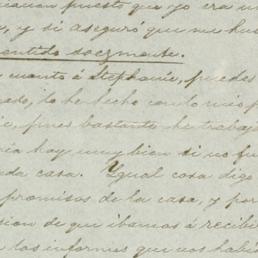 puesto que yo era
, y si aseguró que me
sentido
cuanto á Stephanie, puedes
lo he hecho con lo mis
pues bastante he trabaja
hay muy bien si no fu
casa. Igual cosa digo
promisos de la casa, y por
sion de que ibamos á recibir
los informes que nos habi